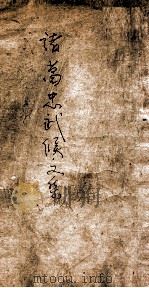 諸葛忠武侯文集
www.mtoou.info